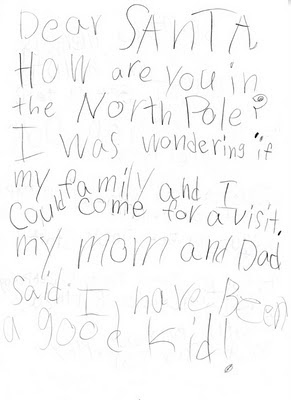 Dear SANTA
How are you in
the North Pole?
I was wondering "if
my family and I
Could come for a visit.
my mom and Dad
said I have Been
a good kid!